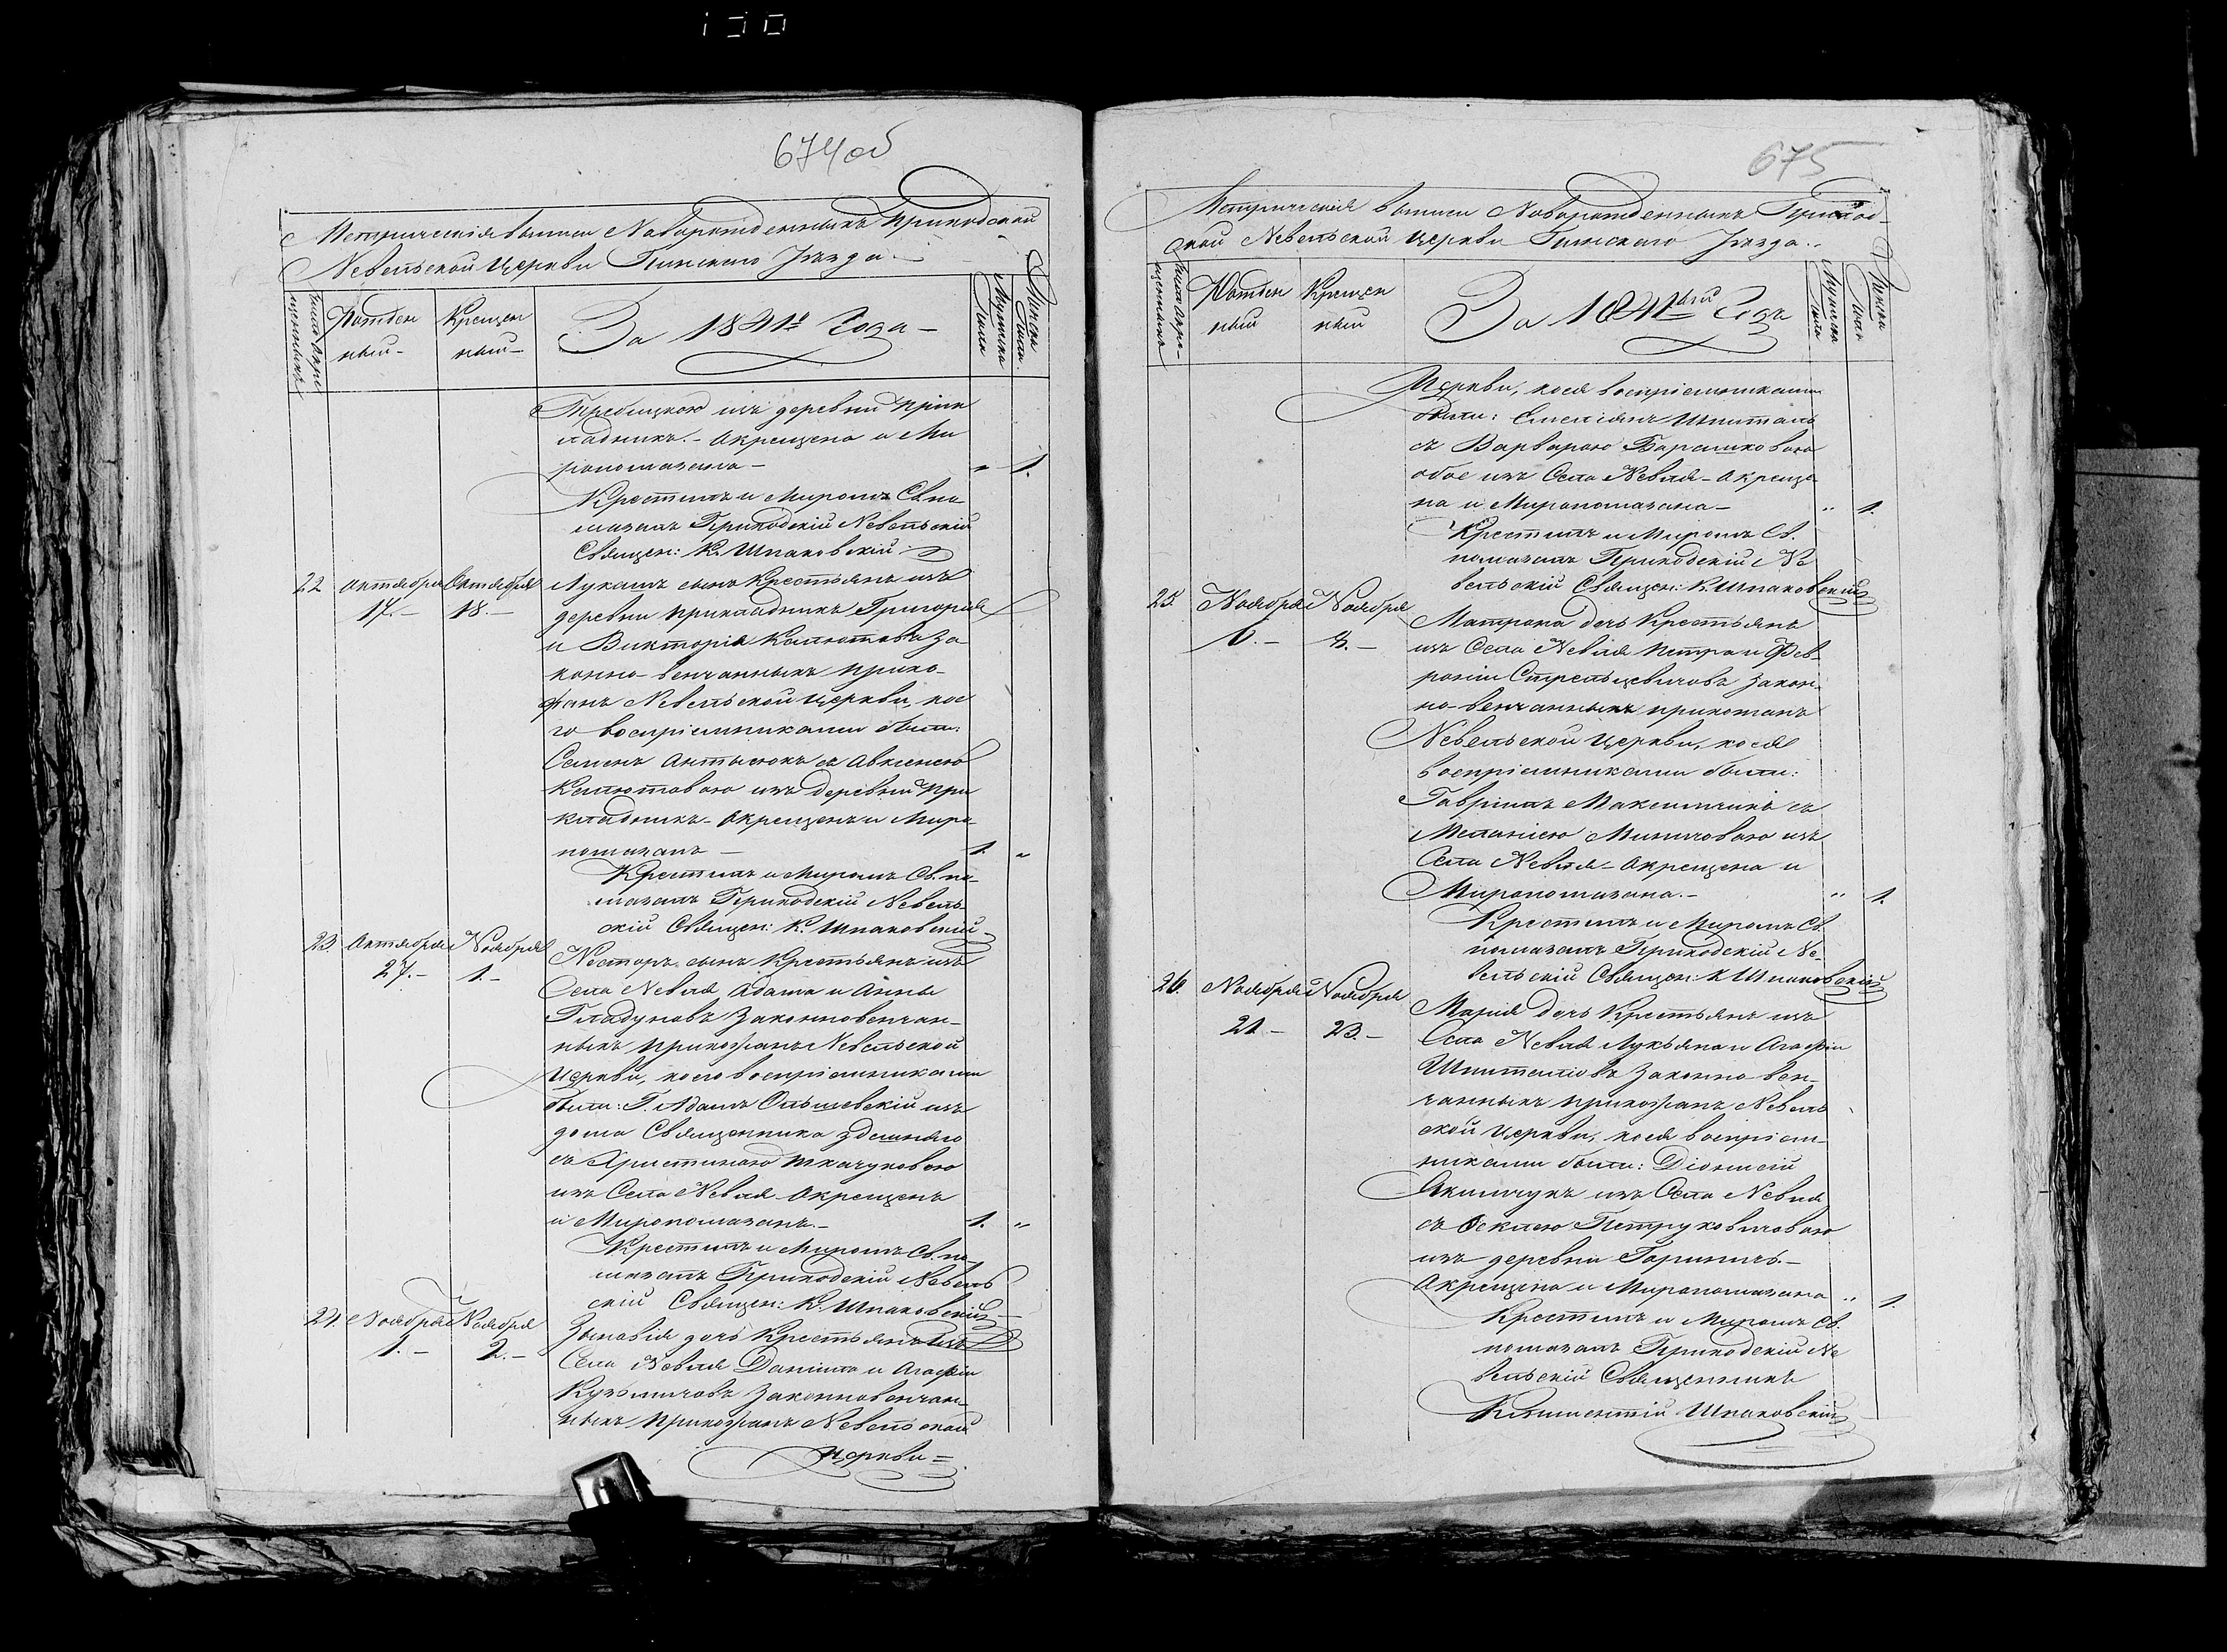 674об
Метрическія выписи Новорожденныхъ Приходской
Невельской Церкви Пинскаго Уѣзда.
Число окре
щенныхъ
Рожден
ныи
Крещен
ныи
За 1841й Года
Мужска
Пола
Женска
Пола
Теребицкою изъ деревни Прик
ладникъ. - Окрещена и Ми
ропомазана - " 1.
Крестилъ и Мѵромъ Св. по
мазалъ Приходскій Невельскій
Священ: К. Шпаковскій
22 Октября 17. Октября 18. Лукашъ сынъ Крестьянъ изъ
деревни Прикладникъ Григорія
и Викторіи Калютовъ за
конно-венчанныхъ прихо-
жанъ Невельской Церкви, кое
го воспріемниками были:
Семенъ Антысюкъ съ Авкленею
Калютовою изъ деревни При
кладникъ - Окрещенъ и Миро
помазанъ - 1. "
Крестилъ и Миромъ Св. по-
мазалъ Приходскій Невель
скій Священ: К. Шпаковскій
23. Октября 27. Ноября 1. Несторъ сынъ Крестьянъ изъ
Села Невля Адама и Анны
Гладуновъ Законновенчан-
ныхъ прихожанъ Невельской
Церкви, коего воспріемниками
были: Г. Адамъ Ольшевскій изъ
дома Священника здешняго
съ Христиною Ткачуковою
изъ Села Невля Окрещенъ
и Миропомазанъ. - 1. "
Крестилъ и Миромъ Св. по
мазалъ Приходскій Невель
скій Священ: К. Шпаковскій
24. Ноября 1. Ноября 2. Зыновія дочь Крестьянъ изъ
Села Невля Даніила и Агафіи
Кузьмичовъ Законновенчан
ныхъ Прихожанъ Невельской
Церкви =
675
Метрическія выписи Новорожденныхъ Приход-
ской Невельской Церкви Пинскаго Уѣзда.
Число окре-
щенныхъ
Рожден
ныи
Крещен
ныи
За 1841ый Годъ
Мужска
Пола
Женска
Пола
Церкви, коея воспріемниками
были: Емеліянъ Шпиталь
съ Варварою Барашковою
обое изъ Села Невля - Окреще
на и Миропомазана - " 1.
Крестилъ и Миромъ Св.
помазалъ Приходскій Не
вельскій Священ: К. Шпаковскій
25. Ноября 6. Ноября 8. Матрона дочь Крестьянъ
изъ Села Невля Петра и Фев-
роніи Стрельцевичовъ закон-
но-венчанныхъ прихожанъ
Невельской Церкви, коея
воспріемниками были:
Гавріилъ Максимчикъ съ
Меланіею Миничовою изъ
Села Невля - Окрещена и
Миропомазана. - " 1.
Крестилъ и Миромъ Св.
помазалъ Приходскій Не-
вельскій Священ: К Шпаковскій
26. Ноября 21 - Ноября 23. - Марія дочь Крестьянъ изъ
Села Невля Лукьяна и Агафіи
Шпиталювъ Законно вен-
чанныхъ прихожанъ Невель
ской Церкви, коея воспріем-
никами были: Діонисій
Якимчукъ изъ Села Невля
съ Феклею Петруковичовою
изъ деревни Гориничъ. -
Окрещена и Миропомазана " 1.
Крестилъ и Миромъ Св.
помазалъ Приходскій Не
вельскій Священникъ
Климентій Шпаковскій